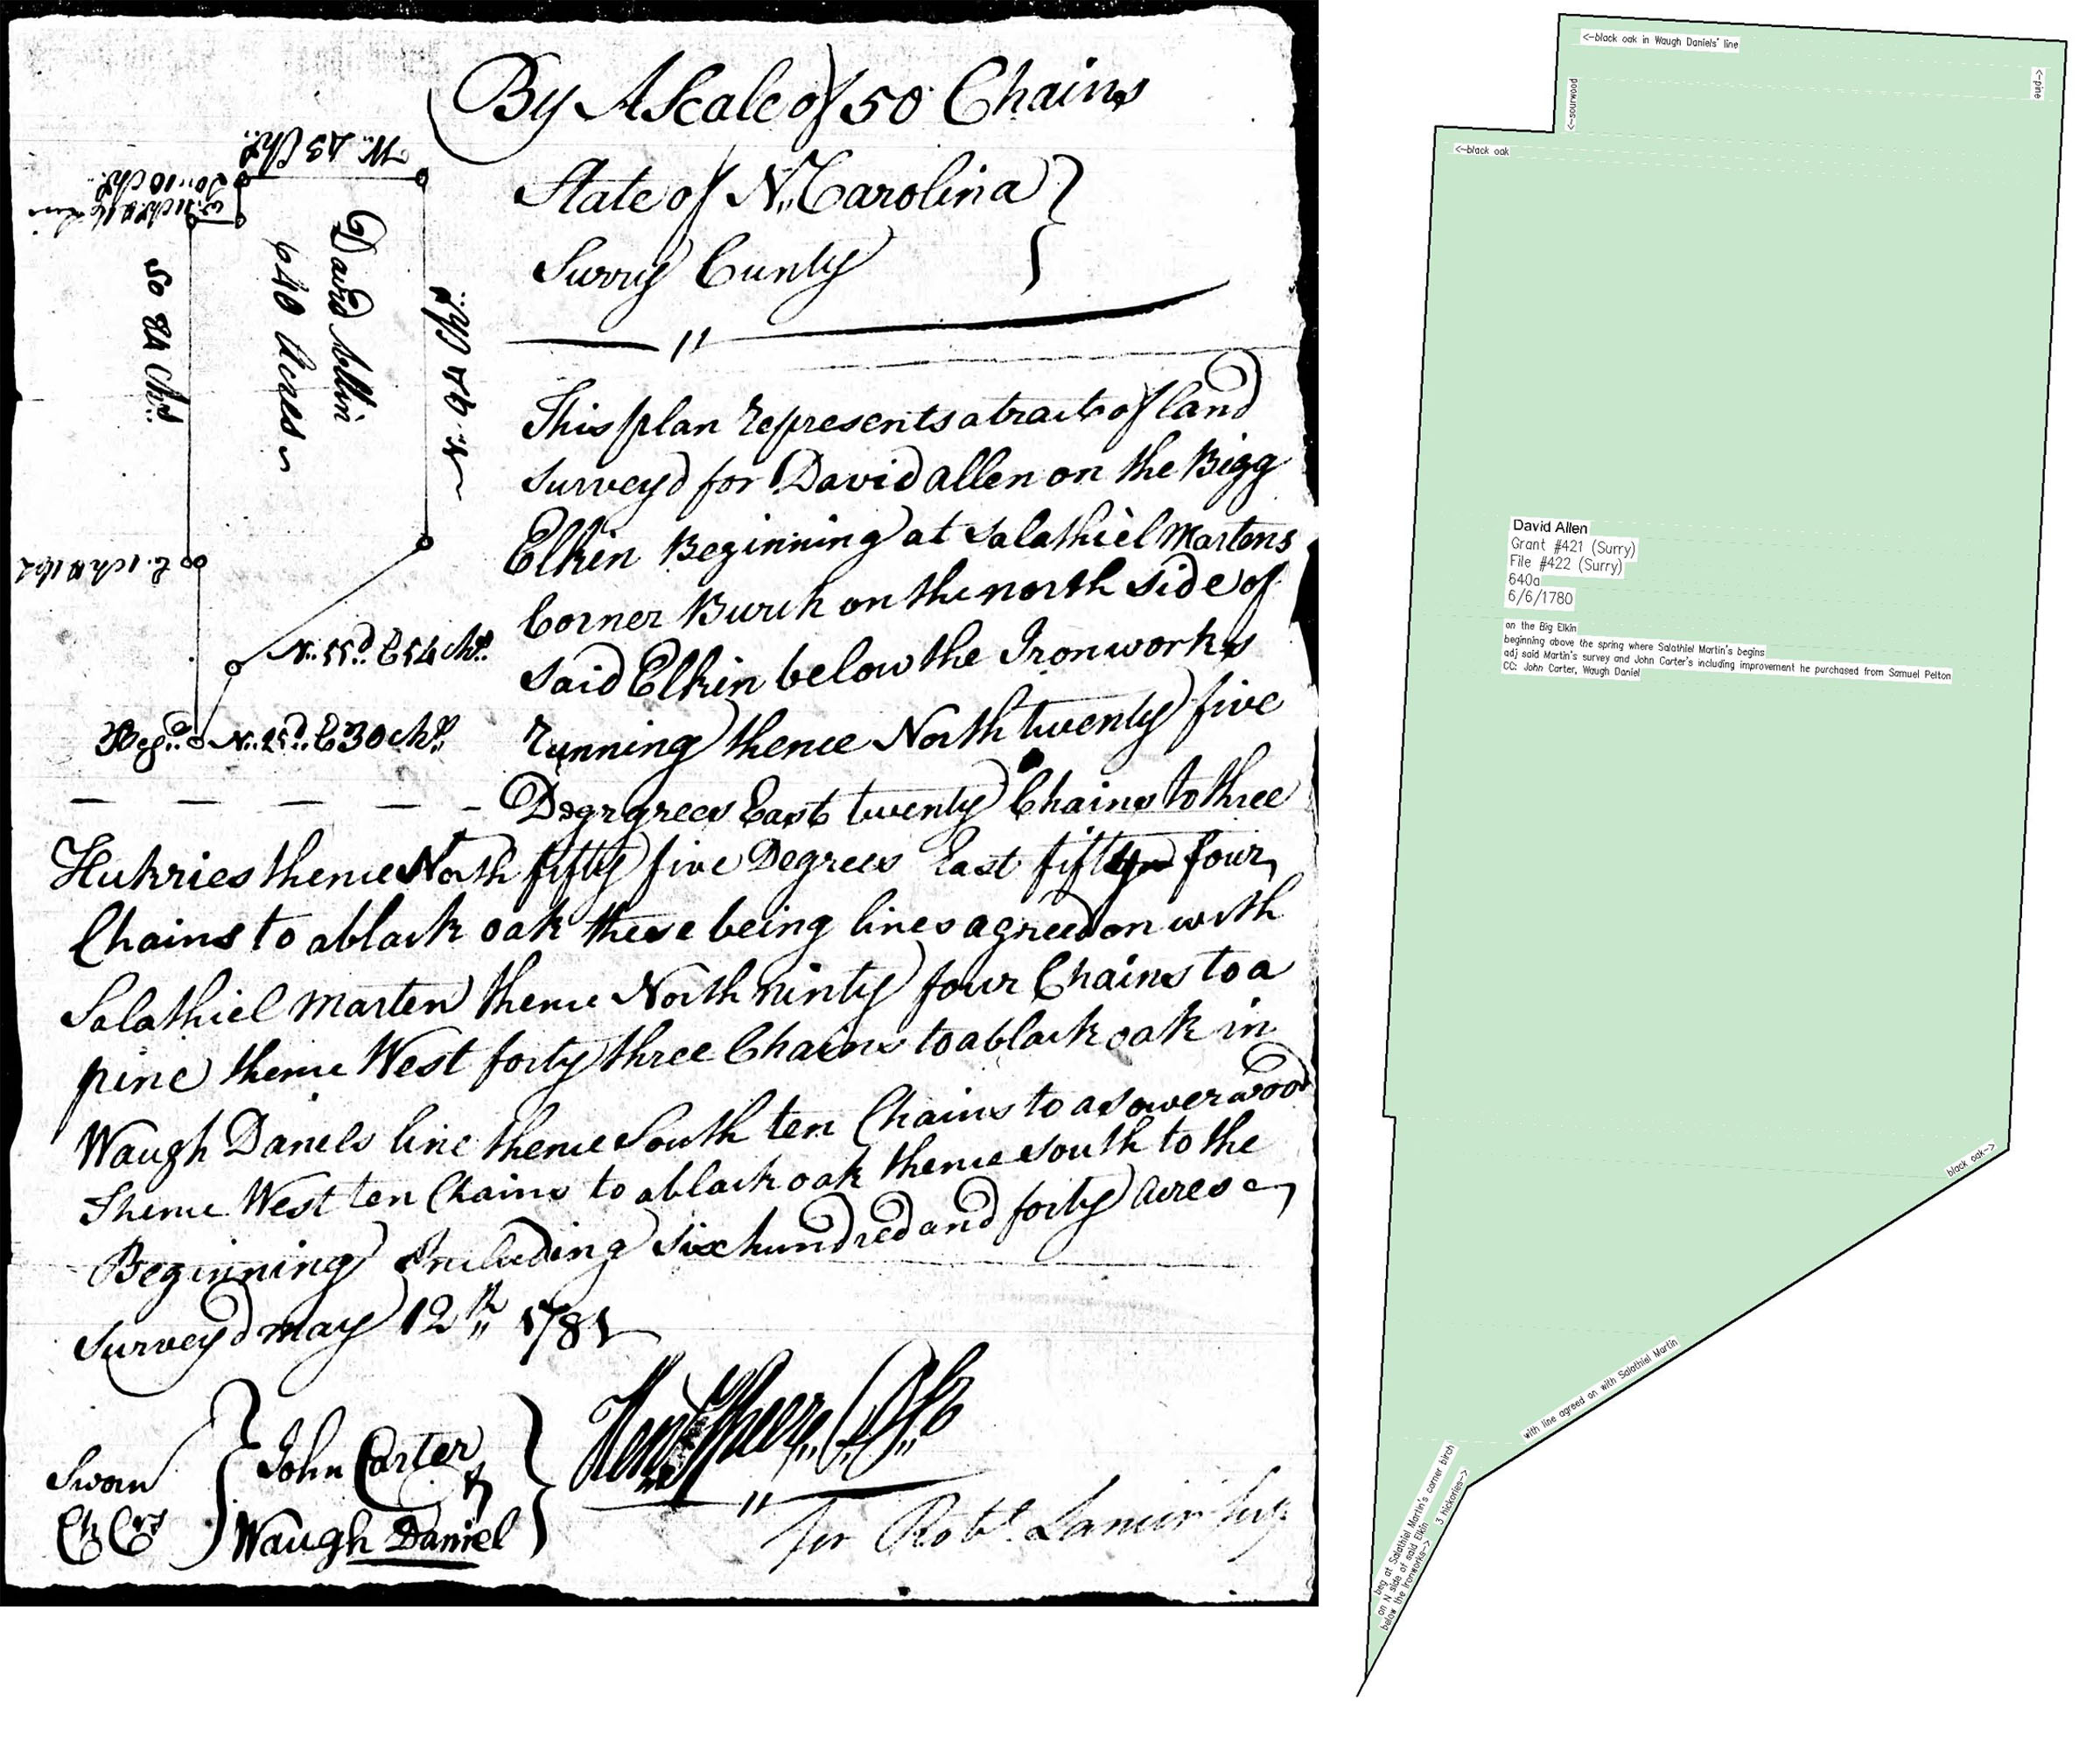 By A Scale of 50 Chains
State of N.. Carolina }
Surry Cunty }
W. 43 Chs.
So.. 10 Chs.
So 84 Chs.
David Allin
640 Acres
N. 94 Chs.
N.. 55d. E 54 Chs.
Beg.. N.. 25d. E 30 Chs.
This plan represents a tract of land
surveyd for David allen on the Bigg
Elkin Beginning at Salathiel Martens
Corner Burch on the north side of
said Elkin below the Ironworks
running thence North twenty five
Degrgrees East twenty Chains to three
Hickries thence North fifty five Degrees East fifty four
Chains to a black oak these being lines agreed on with
Salathiel Marten thence North ninty four Chains to a
pine thence West forty three Chains to a black oak in
Waugh Daniels line thence South ten Chains to a sowerwood
Thence West ten Chains to a black oak thence south to the
Beginning Including six hundred and forty acres
Surveyd may 12th 1781
Sworn } John Carter }
Ch Crs } Waugh Daniel }
for Robt. Lanier
<-black oak in Waugh Daniels' line
<-pine
<-sourwood
<-black oak
David Allen
Grant #421 (Surry)
File #422 (Surry)
640a
6/6/1780
on the Big Elkin
beginning above the spring where Salathiel Martin's begins
adj said Martin's survey and John Carter's including improvement he purchased from Samuel Pelton
CC: John Carter, Waugh Daniel
black oak->
with line agreed on with Salathiel Martin
3 hickories->
beg at Salathiel Martin's corner birch
on N side of said Elkin
below the Ironworks->